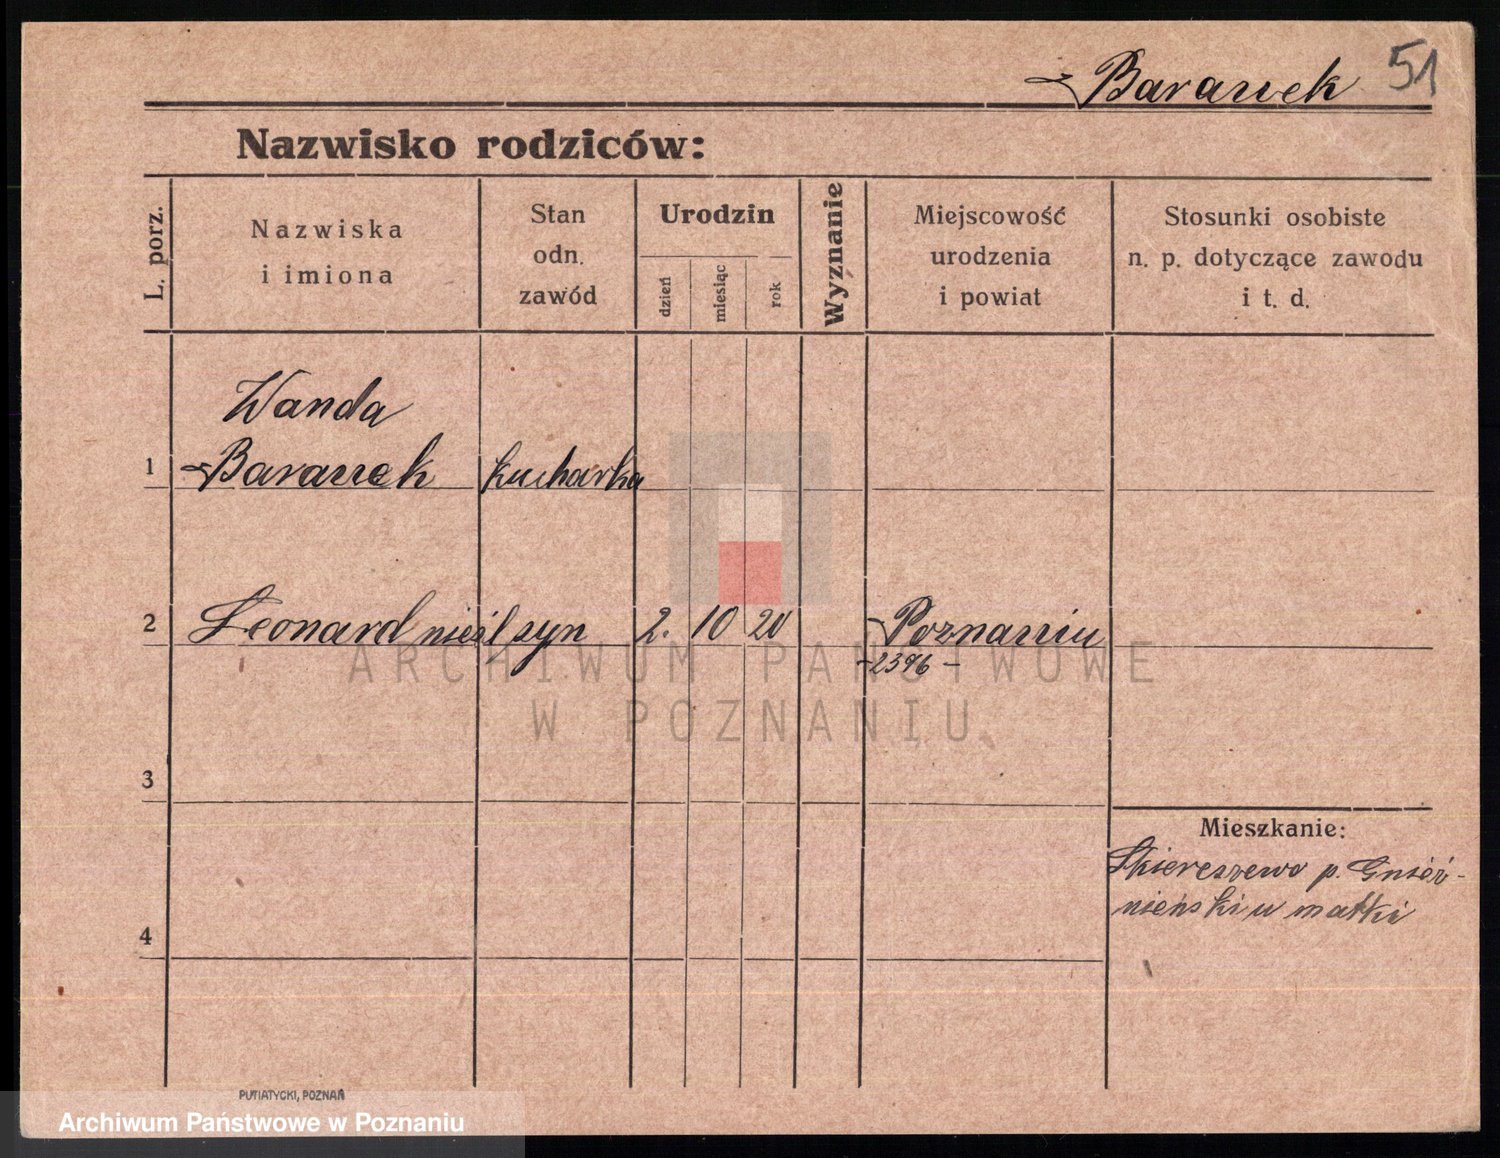 Baranek 51
Nazwisko rodziców:
L. porz.
Nazwiska
i imiona
Stan
odn.
zawód
Urodzin
dzień
miesiąc
rok
Wyznanie
Miejscowość
urodzenia
i powiat
Stosunki osobiste
n. p. dotyczące zawodu
i t. d.
Wanda
1 Baranek kucharka
2 Leonard nieśl syn 2. 10 20 Poznaniu
-2396-
ARCHIWUM PAŃSTWOWE
W POZNANIU
3
Mieszkanie:
Skiereszewo p. Gnieź-
nieński u matki
4
PUTIATYCKI, POZNAŃ
Archiwum Państwowe w Poznaniu